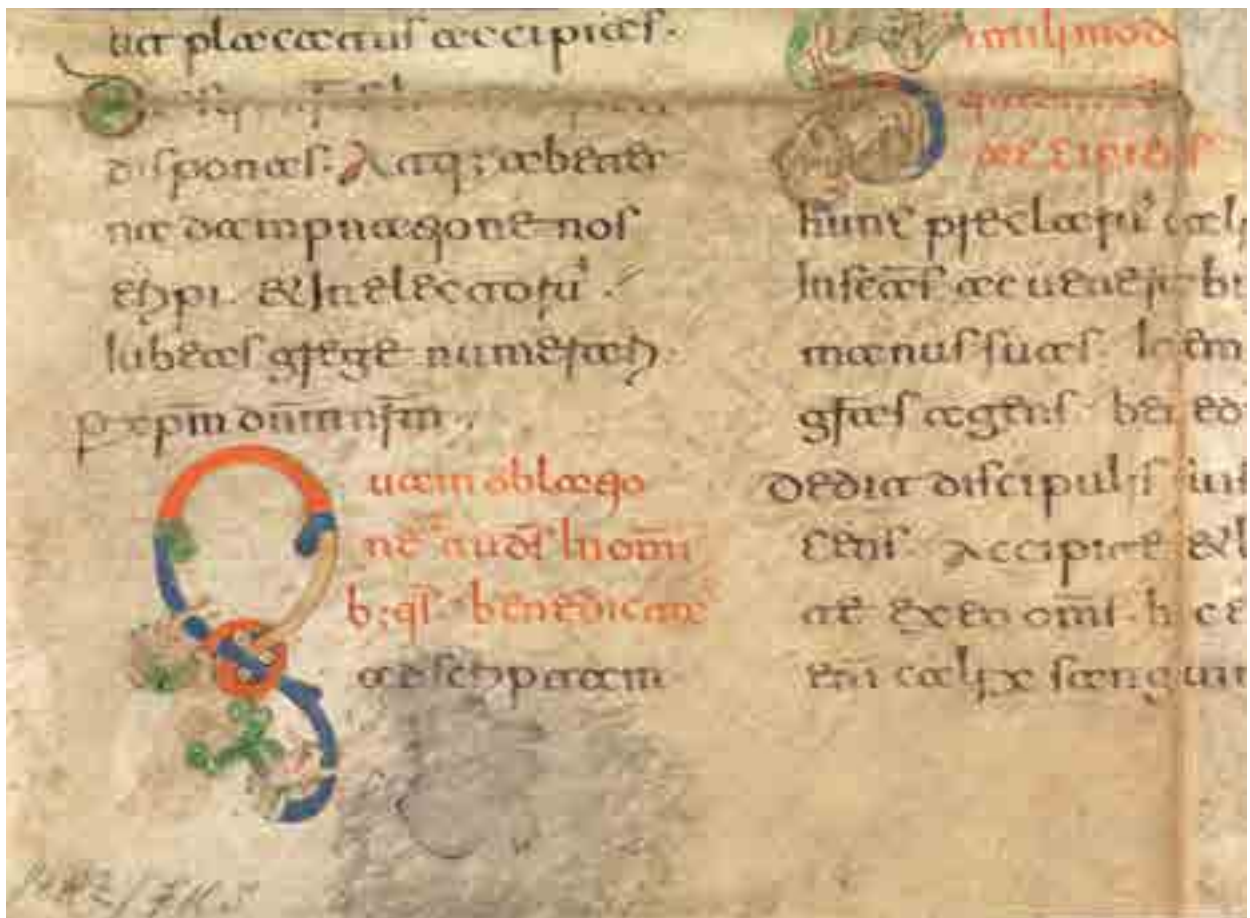 ut placatus accipias.
disponas. Atq; ab eter
na dampnatione nos
eripi. & In electoru'
iubeas grege numerari.
p xpm dnm nrm.
Quam oblatio
nē tu ds In omi
b; qs benedicta'
ascriptam
Simili mod
accipiens
hunc preclaru' cali
In scas ac uenerabi
manus suas. Item
gras agens bened
dedit discipulis suis
cens. Accipite & b
te ex eo oms. hic e
eni calix sanguin